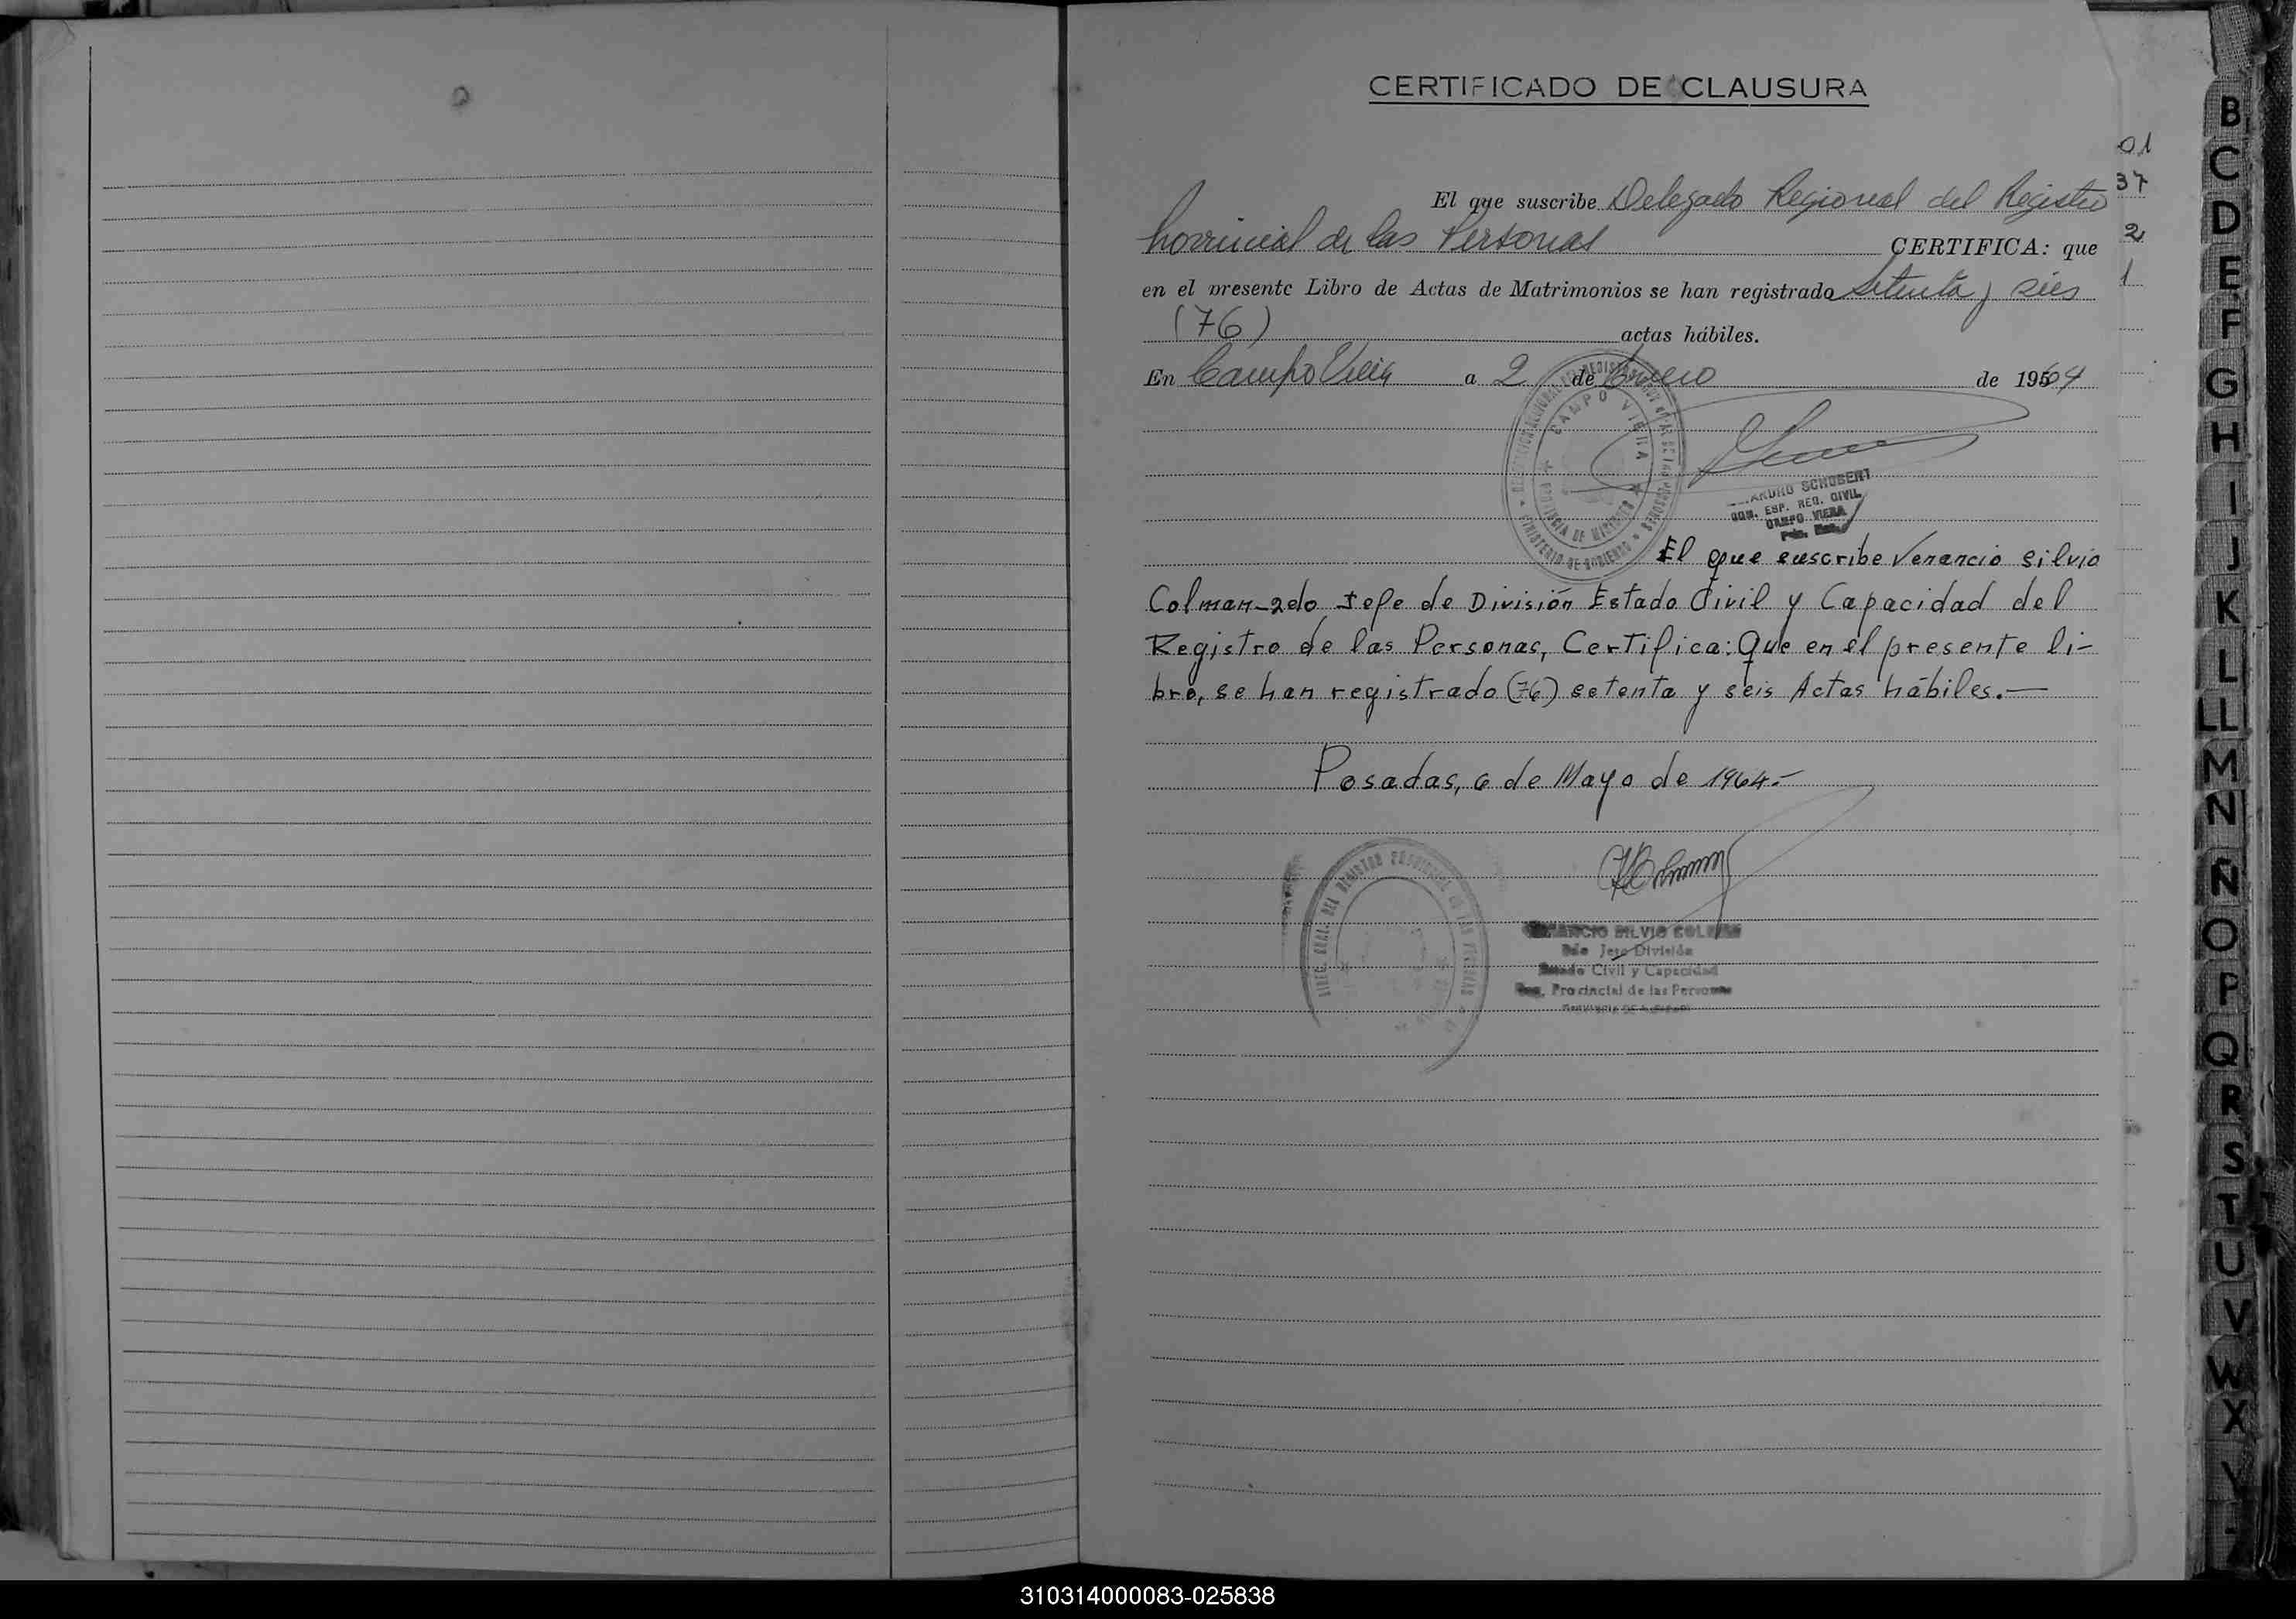 CERTIFICADO DE CLAUSURA
01
37
2
1
El que suscribe Delegado Regional del Registro
Provincial de las Personas CERTIFICA: que
en el presente Libro de Actas de Matrimonios se han registrado Setenta y seis
(76) actas hábiles.
En Campo Viera a 2 de Enero de 1964
CAMPO VIERA
PROVINCIA DE MISIONES
MINISTERIO DE GOBIERNO
SCHUBERT
ESP. REG. CIVIL
CAMPO VIERA
El que suscribe Venancio Silvio
Colman-2do Jefe de División Estado Civil y Capacidad del
Registro de las Personas, Certifica: Que en el presente li-
bro, se han registrado (76) setenta y seis Actas hábiles.—
Posadas, 6 de Mayo de 1964.-
DIREC. GRAL. DEL REGISTRO PROVINCIAL DE LAS PERSONAS
VENANCIO SILVIO COLMAN
2do Jefe División
Estado Civil y Capacidad
Reg. Provincial de las Personas
B
C
D
E
F
G
H
I
J
K
L
LL
M
N
Ñ
O
P
Q
R
S
T
U
V
W
X
Y
310314000083-025838